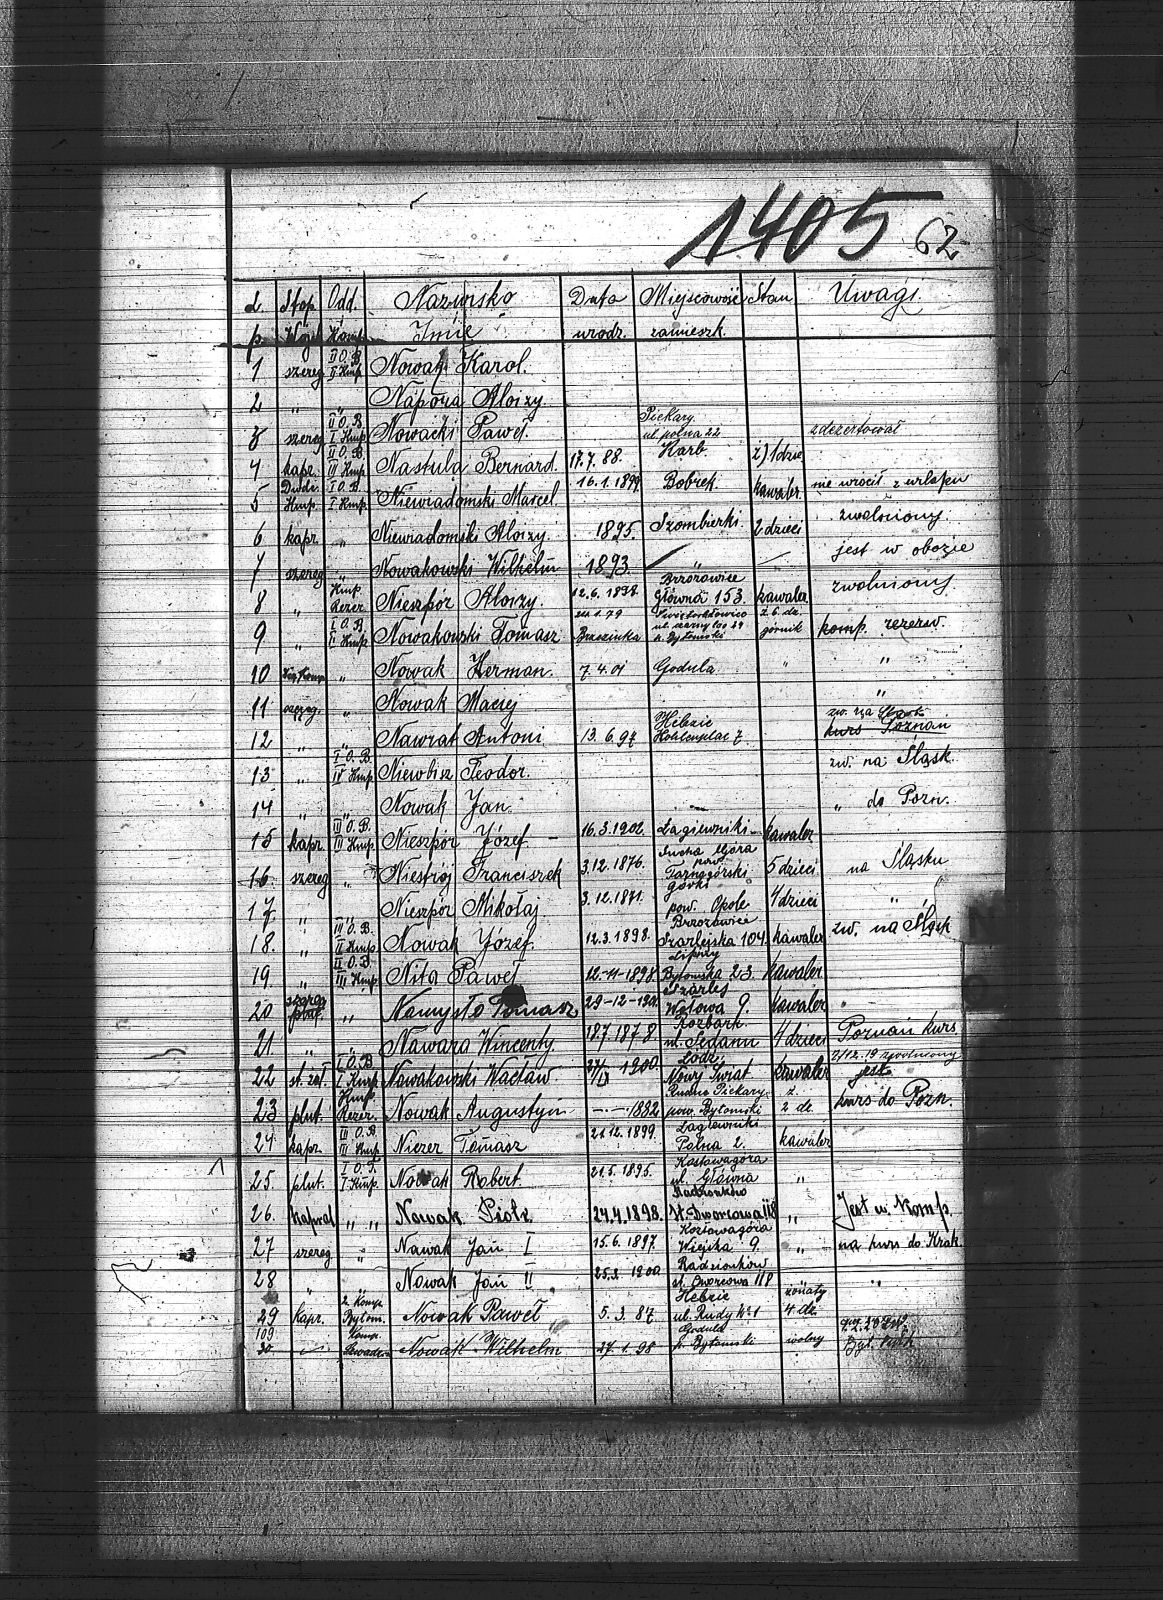 1405 62
L. Stop. Odd. Nazwisko Data Miejscowość Stan Uwagi
p. Wojsk Komp. Imię urodz. zamieszk.
1 szereg II O.B. II Kmp. Nowak Karol.
2 " " Napora Aloizy.
3 szereg II O.B. I Kmp. Nowacki Paweł. Piekary ul. polna 22 zdezertował
4 kapr. II O.B. III Kmp. Nastula Bernard. 17.7.88 Karb ż) 1 dzie
5 Dwdz. Kmp. I O.B. I Kmp. Niewiadomski Marcel 16.1.1899 Bobrek. kawaler. nie wrócił z urlopu
6 kapr. " Niewiadomski Aloizy. 1895. Szombierki. 2 dzieci zwolniony.
7 szereg " Nowakowski Wilhelm 1893. " jest w obozie
8 " Kmp. Rezer. Nieszpór Aloizy. 12.6.1898. Brzozowice Główna 153. kawaler zwolniony
9 " I O.B. I Kmp. Nowakowski Tomasz 1.79 Brzezinka Świętochłowice p. Bytomski ż. 6 dz. górnik komp. rezerw.
10 " Nowak Herman. 7.4.01 Godula " "
11 szereg. " Nowak Maciej "
12 " " Nawrat Antoni 13.6.97 Hebzie Kohlenplac 7. zw. na kurs Poznań
13 " I O.B. IV Kmp. Niewbisz Teodor. zw. na Śląsk.
14 " " Nowak Jan. " do Pozn.
15 kapr. III O.B. III Kmp. Nieszpór Józef 16.3.1902. Łagiewniki kawaler
16. szereg " Niestrój Franciszek 3.12.1876. Sucha Góra pow. Tarnogórski 5 dzieci na Śląsku
17 " " Nieszpór Mikołaj 3.12.1871. górki pow. Opole 4 dzieci "
18. " III O.B. II Kmp. Nowak Józef. 12.3.1898. Brzozowice Szarlejska 104. kawaler zw. na Śląsk
19. " II O.B. III Kmp. Nita Paweł 12-11-1898. Lipiny Bytomska 23. kawaler
20 szereg plut. " Namysło Tomasz 29-12-1901. Szarlej Wałowa 9. kawaler "
21. " " Nawara Wincenty 18.7.1878. Rozbark ul. Sedanu 4 dzieci Poznań kurs
22 st. żoł. I O.B. I Kmp. Nowakowski Wacław 1900. Łódź Nowy Świat kawaler 2/12.19 zwolniony jest
23 plut. Kmp. Rezer. Nowak Augustyn - - 1882 Rudne Piekary pow. Bytomski ż. 2 dz. kurs do Pozn.
24 kapr. III O.B. III Kmp. Niezer Tomasz 21.12.1899. Łagiewniki Polna 2. kawaler
25 plut. I O.B. I Kmp. Nowak Robert. 21.5.1895. Kozłowagóra ul. Główna "
26. kapral " " Nowak Piotr. 27.4.1898. Radzionków st. Dworcowa 118 " Jest w Komp.
27 szereg " Nowak Jan I 15.6.1897. Kozłowagóra Wiejska 9. " na kurs do Krak.
28 " Nowak Jan II. 25.2.1900. Radzionków st. Dworcowa 118 "
29 Kapr. 2. Komp. Bytom. Nowak Paweł 5.3.87 Hebzie ul. Rudy № 1 żonaty 4 dz.
109
30 Komp. Nowak Wilhelm 27.1.98 Godula p. Bytomski wolny